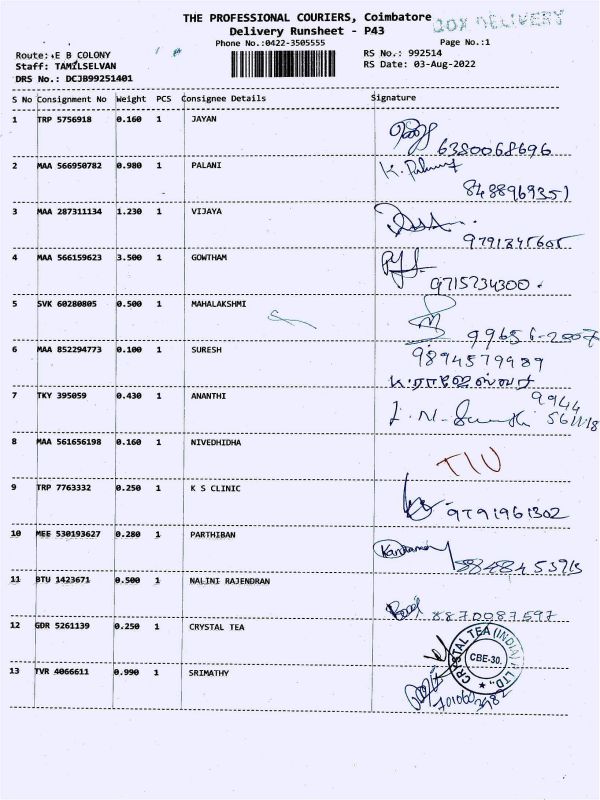 THE PROFESSIONAL COURIERS, Coimbatore
DOX DELIVERY
Delivery Runsheet - P43
Phone No.:0422-3505555
Page No.:1
Route: E B COLONY
RS No.: 992514
Staff: TAMILSELVAN
RS Date: 03-Aug-2022
DRS No.: DCJB99251401
S No Consignment No Weight PCS Consignee Details Signature
1 TRP 5756918 0.160 1 JAYAN
6380068696
2 MAA 566950782 0.980 1 PALANI
8488969351
3 MAA 287311134 1.230 1 VIJAYA
9791845605
4 MAA 566159623 3.500 1 GOWTHAM
9715234300
5 SVK 60280805 0.500 1 MAHALAKSHMI
6 MAA 852294773 0.100 1 SURESH
9894579989
7 TKY 395059 0.430 1 ANANTHI
9944
561118
8 MAA 561656198 0.160 1 NIVEDHIDHA
9 TRP 7763332 0.250 1 K S CLINIC
9791961302
10 MEE 530193627 0.280 1 PARTHIBAN
11 BTU 1423671 0.500 1 NALINI RAJENDRAN
8870087597
12 GDR 5261139 0.250 1 CRYSTAL TEA
CRYSTAL TEA (INDIA) P LTD.,
CBE-30.
13 TVR 4066611 0.990 1 SRIMATHY